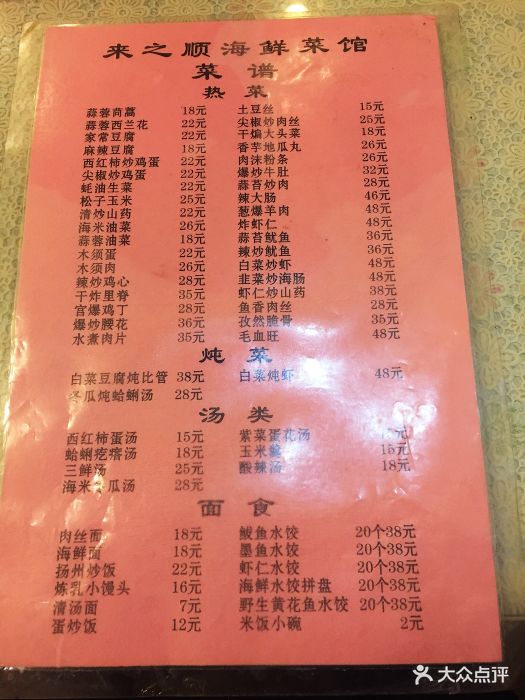 来之顺海鲜菜馆
菜谱
热菜
蒜蓉茼蒿 18元
蒜蓉西兰花 22元
家常豆腐 22元
麻辣豆腐 18元
西红柿炒鸡蛋 22元
尖椒炒鸡蛋 22元
蚝油生菜 22元
松子玉米 25元
清炒山药 22元
海米油菜 26元
蒜蓉油菜 18元
木须蛋 22元
木须肉 26元
辣炒鸡心 28元
干炸里脊 35元
宫爆鸡丁 28元
爆炒腰花 36元
水煮肉片 35元
土豆丝 15元
尖椒炒肉丝 25元
干煸大头菜 18元
香芋地瓜丸 26元
肉沫粉条 26元
爆炒牛肚 32元
蒜苔炒肉 28元
辣大肠 46元
葱爆羊肉 48元
炸虾仁 48元
蒜苔鱿鱼 36元
辣炒鱿鱼 36元
白菜炒虾 48元
韭菜炒海肠 48元
虾仁炒山药 38元
鱼香肉丝 28元
孜然脆骨 35元
毛血旺 48元
炖菜
白菜豆腐炖比管 38元
冬瓜炖蛤蜊汤 28元
白菜炖虾 48元
汤类
西红柿蛋汤 15元
蛤蜊疙瘩汤 18元
三鲜汤 25元
海米冬瓜汤 28元
紫菜蛋花汤 元
玉米 15元
酸辣汤 18元
面食
肉丝面 18元
海鲜面 18元
扬州炒饭 22元
炼乳小馒头 16元
清汤面 7元
蛋炒饭 12元
鲅鱼水饺 20个38元
墨鱼水饺 20个38元
虾仁水饺 20个38元
海鲜水饺拼盘 20个38元
野生黄花鱼水饺 20个38元
米饭小碗 2元
大众点评